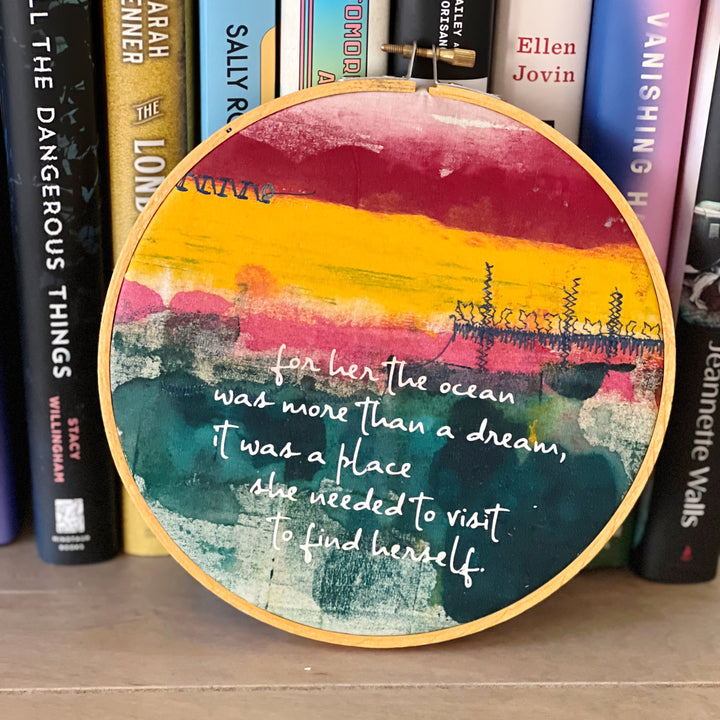 LL THE DANGEROUS THINGS
STACY
WILLINGHAM
MINOTAUR
BOOKS
ARAH
ENNER
THE
LOND
SALLY RO
TOMOR
A
AILEY
Ellen
Jovin
VANISHING H
Jeannette Walls
for her the ocean
was more than a dream,
it was a place
she needed to visit
to find herself.